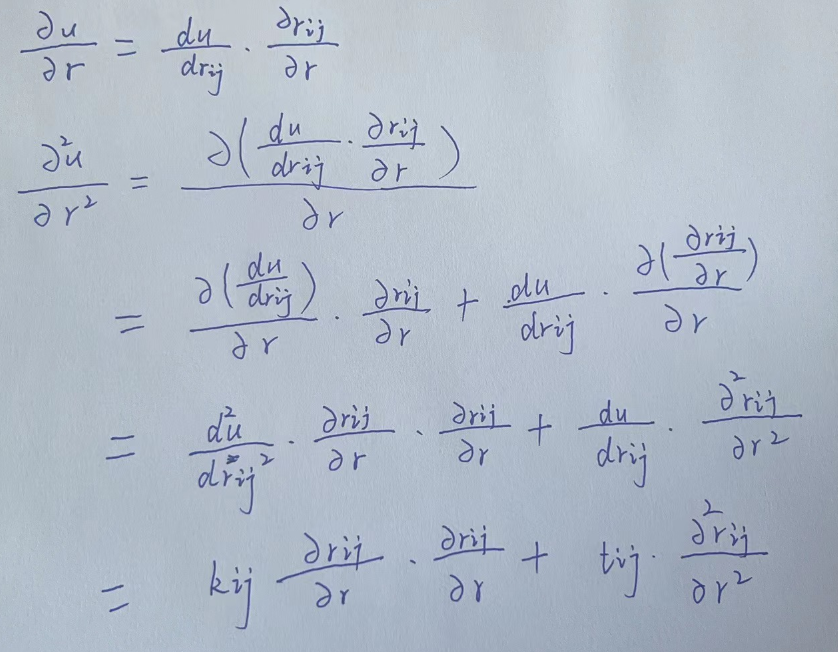 ∂u/∂r = du/drij · ∂rij/∂r
∂²u/∂r² = ∂(du/drij · ∂rij/∂r)/∂r
= ∂(du/drij)/∂r · ∂rij/∂r + du/drij · ∂(∂rij/∂r)/∂r
= d²u/drij² · ∂rij/∂r · ∂rij/∂r + du/drij · ∂²rij/∂r²
= kij ∂rij/∂r · ∂rij/∂r + tij · ∂²rij/∂r²